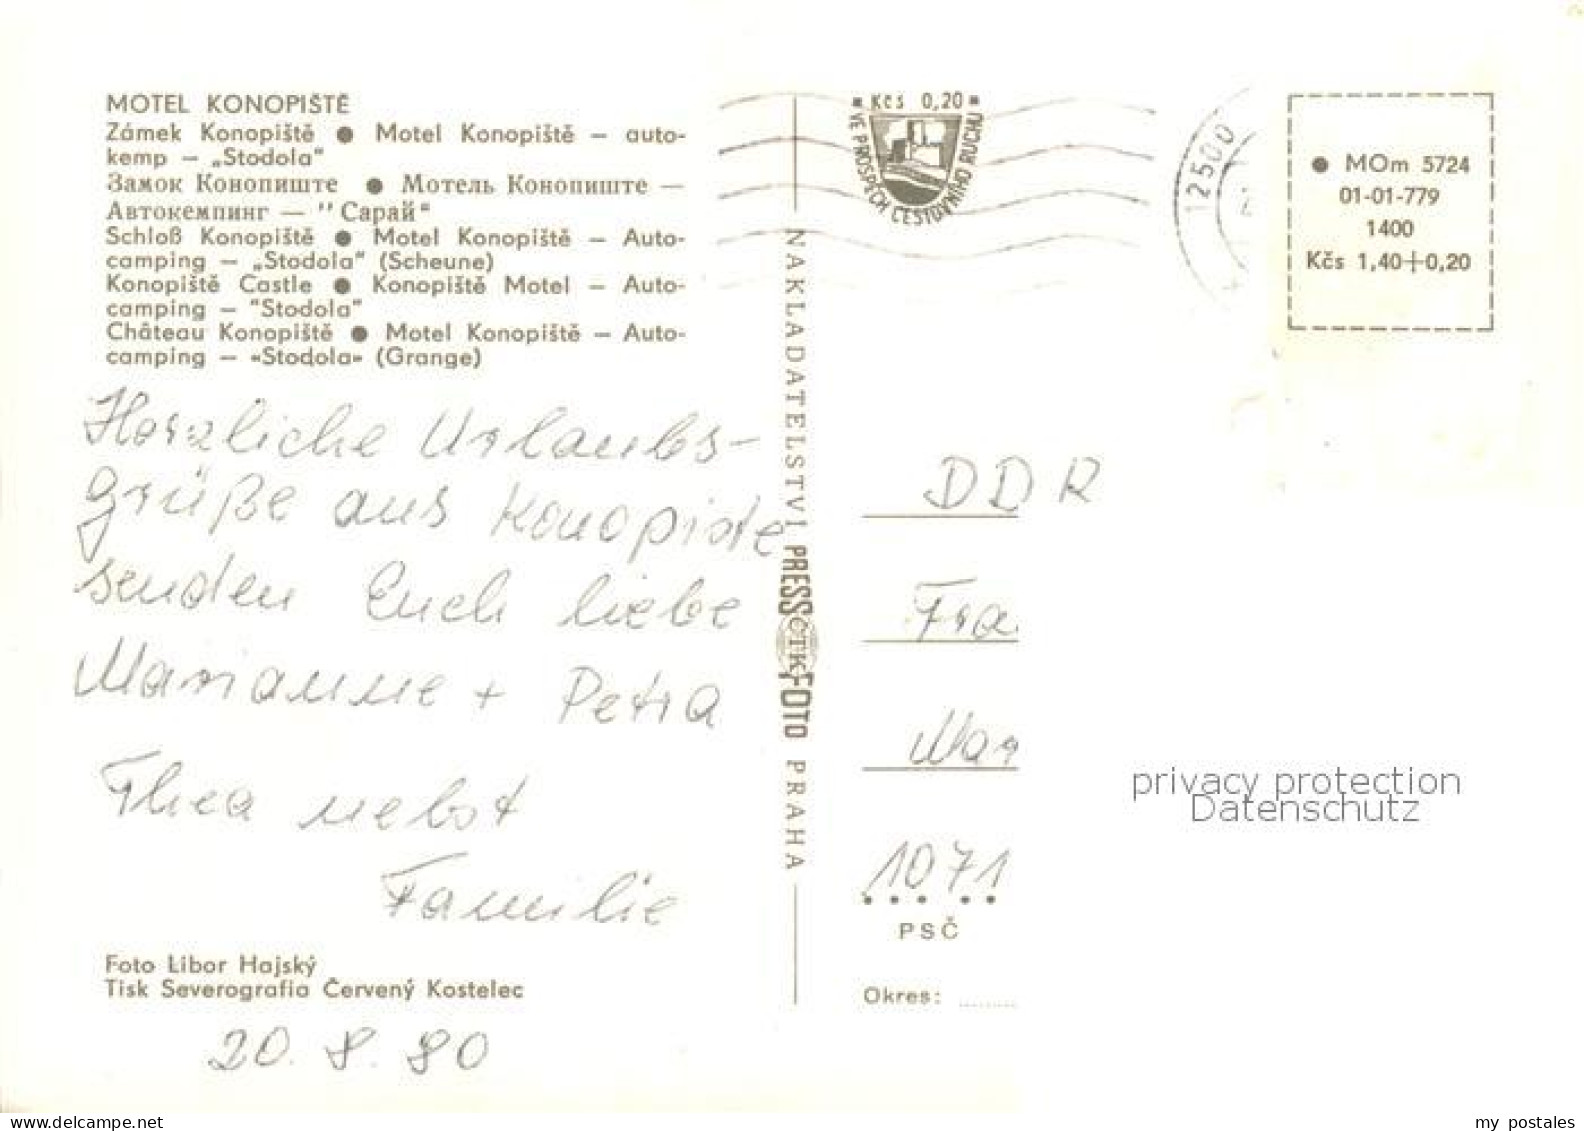 MOTEL KONOPIŠTĚ
Zámek Konopiště ● Motel Konopiště — auto-
kemp — „Stodola"
Замок Конопиште ● Мотель Конопиште —
Автокемпинг — "Сарай"
Schloß Konopiště ● Motel Konopiště — Auto-
camping — „Stodola" (Scheune)
Konopiště Castle ● Konopiště Motel — Auto-
camping — "Stodola"
Château Konopiště ● Motel Konopiště — Auto-
camping — «Stodola» (Grange)
Herzliche Urlaubs-
grüße aus Konopiste
senden Euch liebe
Marianne + Petra
Thea nebst
Familie
Foto Libor Hajský
Tisk Severografia Červený Kostelec
20. 8. 80
NAKLADATELSTVÍ PRESSFOTO PRAHA
ČTK
Kčs 0,20
VE PROSPĚCH CESTOVNÍHO RUCHU
12500
● MOm 5724
01-01-779
1400
Kčs 1,40+0,20
DDR
Fra
Mar
1071
PSČ
Okres:
privacy protection
Datenschutz
my postales